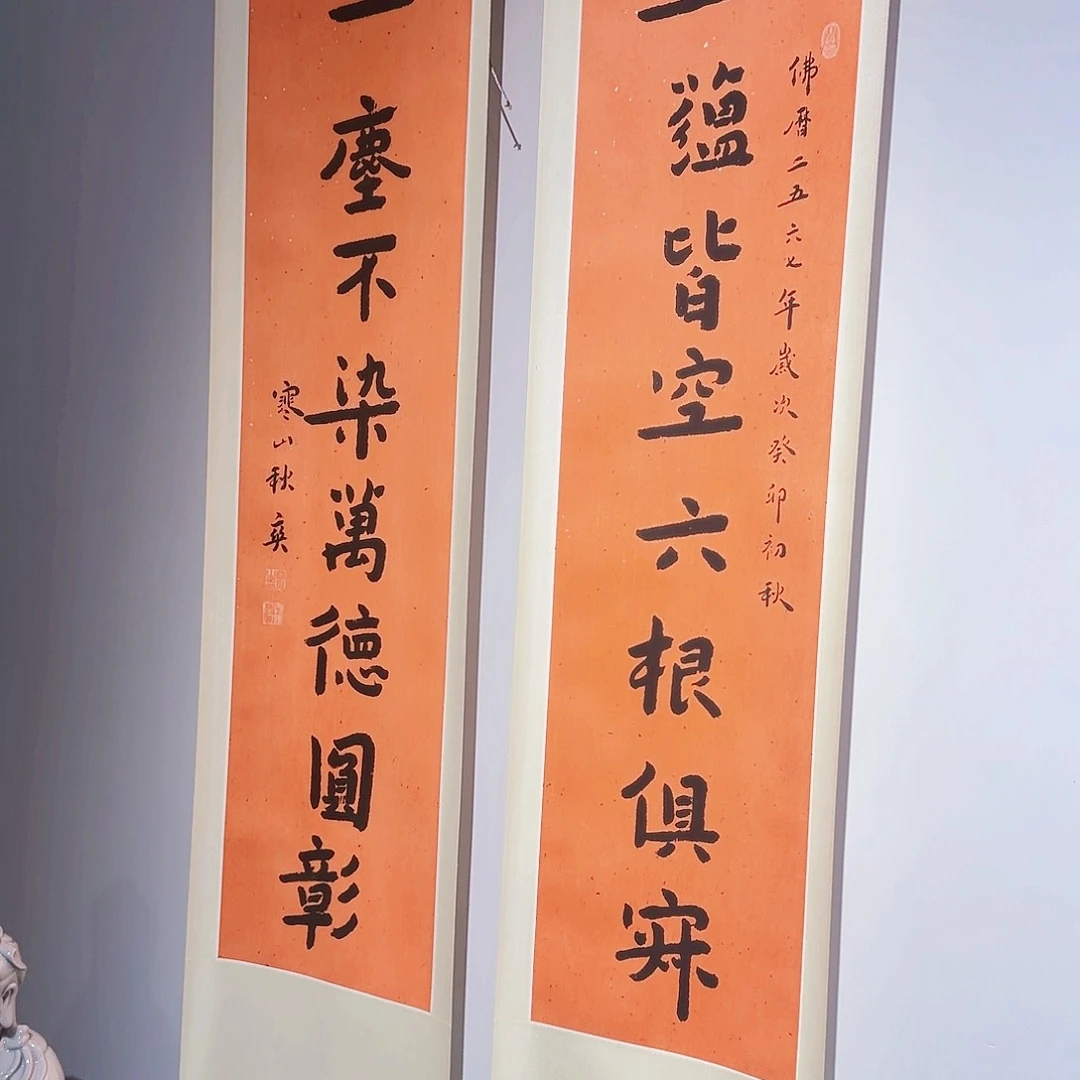 佛曆二五六七年歲次癸卯初秋
蘊皆空六根俱寂
一塵不染萬德圓彰
寒山秋爽